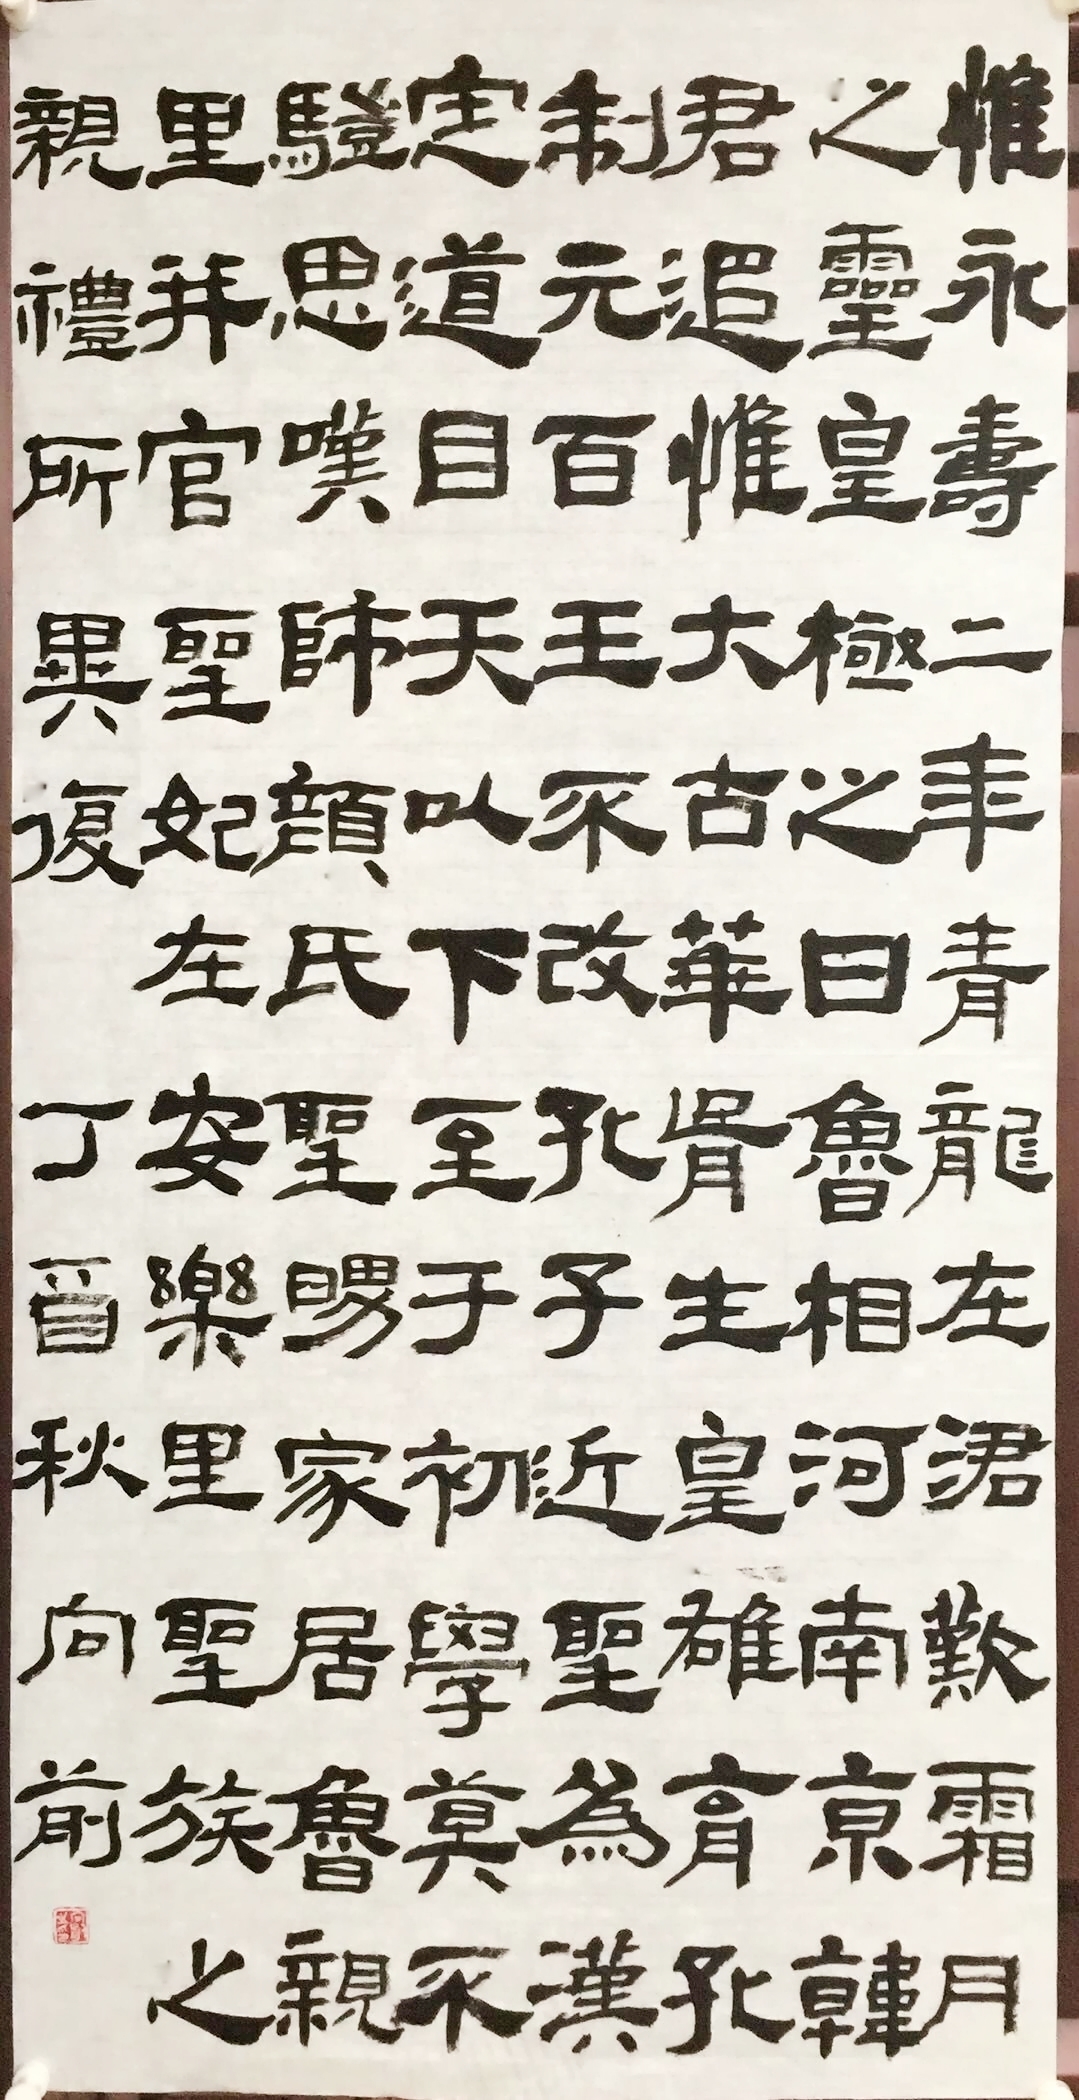 惟永壽二年青龍在涒歎霜月
之靈皇極之日魯相河南京韓
君追惟大古華胥生皇雄育孔
制元百王不改孔子近聖為漢
定道自天以下至于初學莫不
驥思嘆師顏氏聖舅家居魯親
里并官聖妃在安樂里聖族之
親禮所異復
丁酉秋向前